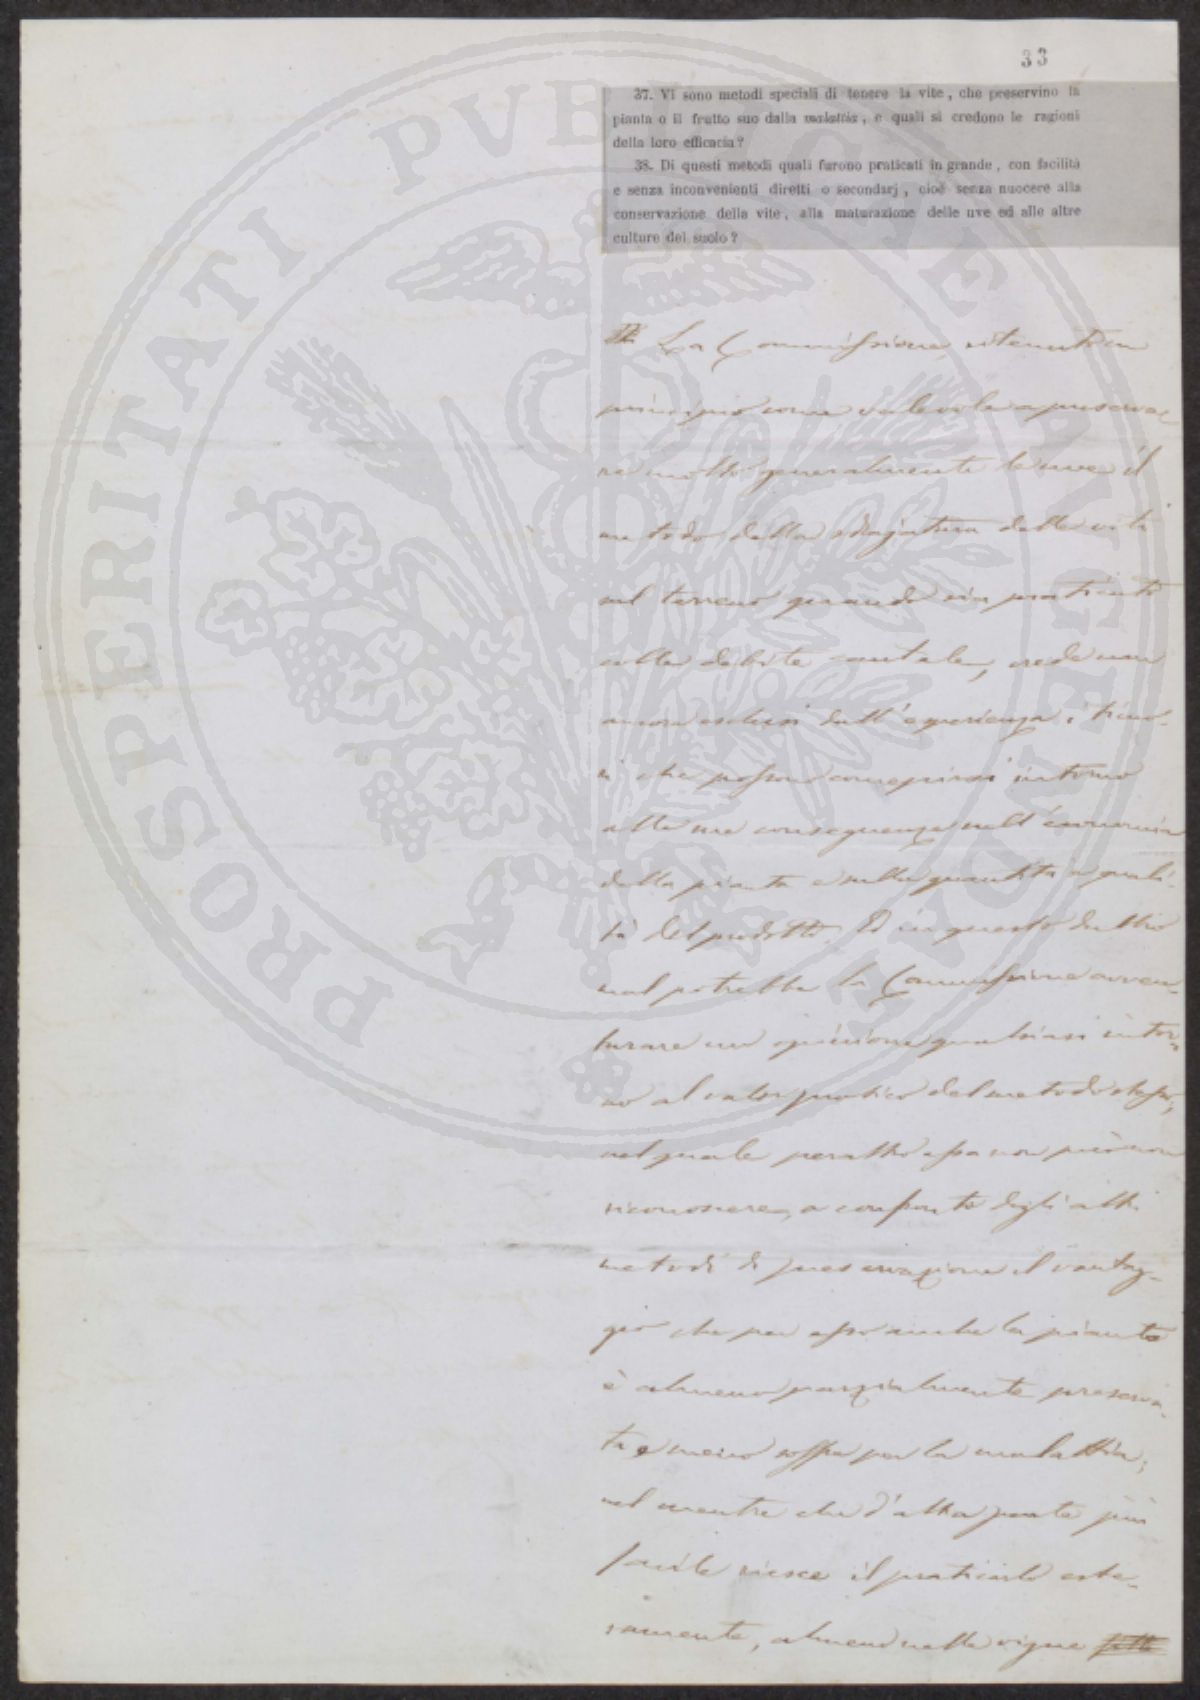 33
37. Vi sono metodi speciali di tenere la vite, che preservino la
pianta o il frutto suo dalla malattia, e quali si credono le ragioni
della loro efficacia?
38. Di questi metodi quali furono praticati in grande, con facilità
e senza inconvenienti diretti o secondarj, cioè senza nuocere alla
conservazione della vite, alla maturazione delle uve ed alle altre
culture del suolo?
La Commissione ritenuto in
principio come valevole a preserva-
re molto generalmente le uve il
metodo della sdrajatura delle viti
sul terreno quando sia praticato
colle debite cautele, crede non
ancora esclusi dall'esperienza i timo-
ri che possono concepirsi intorno
alle sue conseguenze nell'economia
della pianta e sulla quantità e quali-
tà del prodotto. Ed in questo dubbio
mal potrebbe la Commissione avven-
turare un opinione qualsiasi intor-
no al valor pratico del metodo stesso;
nel quale peraltro essa non può non
riconoscere, a confronto degli altri
metodi di preservazione il vantag-
gio che per esso anche la pianta
è almeno parzialmente preserva-
ta e meno soffre per la malattia;
nel mentre che d'altra parte più
facile riesce il praticarlo este-
samente, almeno nelle vigne
PROSPERITATI PVBLICAE AVGENDAE